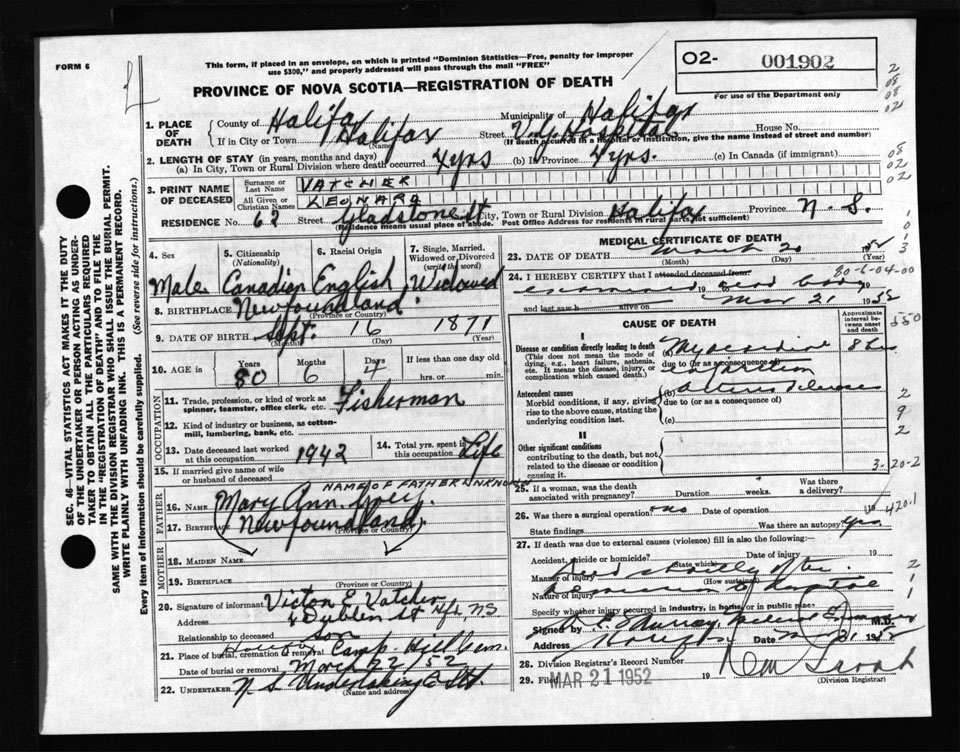 FORM 6
This form, if placed in an envelope, on which is printed "Dominion Statistics—Free, penalty for improper
use $300," and properly addressed will pass through the mail "FREE"
02- 001902
For use of the Department only
PROVINCE OF NOVA SCOTIA—REGISTRATION OF DEATH
1. PLACE OF DEATH
County of Halifax Municipality of Halifax
If in City or Town Halifax (Name) Street V.G. Hospital House No.
(If death occurred in a Hospital or Institution, give the name instead of street and number)
2. LENGTH OF STAY (in years, months and days)
(a) In City, Town or Rural Division where death occurred 4 yrs (b) In Province 4 yrs. (c) In Canada (if immigrant)
3. PRINT NAME OF DECEASED
Surname or Last Name VATCHER
All Given or Christian Names LEONARD
RESIDENCE No. 62 Street Gladstone St City, Town or Rural Division Halifax Province N.S.
(Residence means usual place of abode. Post Office Address for residents in rural parts not sufficient)
4. Sex 5. Citizenship (Nationality) 6. Racial Origin 7. Single, Married, Widowed or Divorced (write the word)
Male Canadian English Widowed
8. BIRTHPLACE Newfoundland
(Province or Country)
9. DATE OF BIRTH Sept. 16 1871
(Month) (Day) (Year)
10. AGE in Years 80 Months 6 Days 4 If less than one day old hrs. or min.
OCCUPATION
11. Trade, profession, or kind of work as spinner, teamster, office clerk, etc. Fisherman
12. Kind of industry or business, as cotton-mill, lumbering, bank, etc.
13. Date deceased last worked at this occupation 1942
14. Total yrs. spent in this occupation Life
15. If married give name of wife or husband of deceased
NAME OF FATHER UNKNOWN
FATHER
16. NAME Mary Ann
17. BIRTHPLACE Newfoundland
(Province or Country)
MOTHER
18. MAIDEN NAME
19. BIRTHPLACE
(Province or Country)
20. Signature of informant Victor E Vatcher
Address Dublin St Hfx, NS
Relationship to deceased son
21. Place of burial, cremation or removal Halifax Camp Hill Cem.
Date of burial or removal March 22/52
22. UNDERTAKER N.S. Undertaking Co Ltd.
(Name and address)
MEDICAL CERTIFICATE OF DEATH
23. DATE OF DEATH March 20 1952
(Month) (Day) (Year)
80-6-04-00
24. I HEREBY CERTIFY that I attended deceased from:
examined 19 dead body
and last saw h alive on Mar 21 1952
CAUSE OF DEATH
Approximate interval between onset and death
I
Disease or condition directly leading to death (a) Myocardial 8 hrs
(This does not mean the mode of dying, e.g., heart failure, asthenia, etc. It means the disease, injury, or complication which caused death.)
due to (or as a consequence of)
Antecedent causes (b)
Morbid conditions, if any, giving rise to the above cause, stating the underlying condition last.
due to (or as a consequence of)
(c)
II
Other significant conditions
contributing to the death, but not related to the disease or condition causing it.
3-20-2
25. If a woman, was the death associated with pregnancy? Duration weeks. Was there a delivery?
26. Was there a surgical operation? no Date of operation 19
State findings Was there an autopsy? yes
4201
27. If death was due to external causes (violence) fill in also the following:
Accident, suicide or homicide? (State which) Date of injury 19
Manner of injury Died shortly after
(How sustained)
Nature of injury admission to hospital
Specify whether injury occurred in industry, in home, or in public place
Signed by Murray Medical Examiner M.D.
Address Date Mar 21 1952
28. Division Registrar's Record Number
29. Filed MAR 21 1952 19
(Division Registrar)
SEC. 46—VITAL STATISTICS ACT MAKES IT THE DUTY
OF THE UNDERTAKER OR PERSON ACTING AS UNDER-
TAKER TO OBTAIN ALL THE PARTICULARS REQUIRED
IN THE "REGISTRATION OF DEATH" AND TO FILE THE
SAME WITH THE DIVISION REGISTRAR WHO SHALL ISSUE THE BURIAL PERMIT.
WRITE PLAINLY WITH UNFADING INK. THIS IS A PERMANENT RECORD.
Every item of information should be carefully supplied. (See reverse side for instructions.)